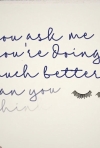 ou ask me
ou're doing
uch better
an you
hin